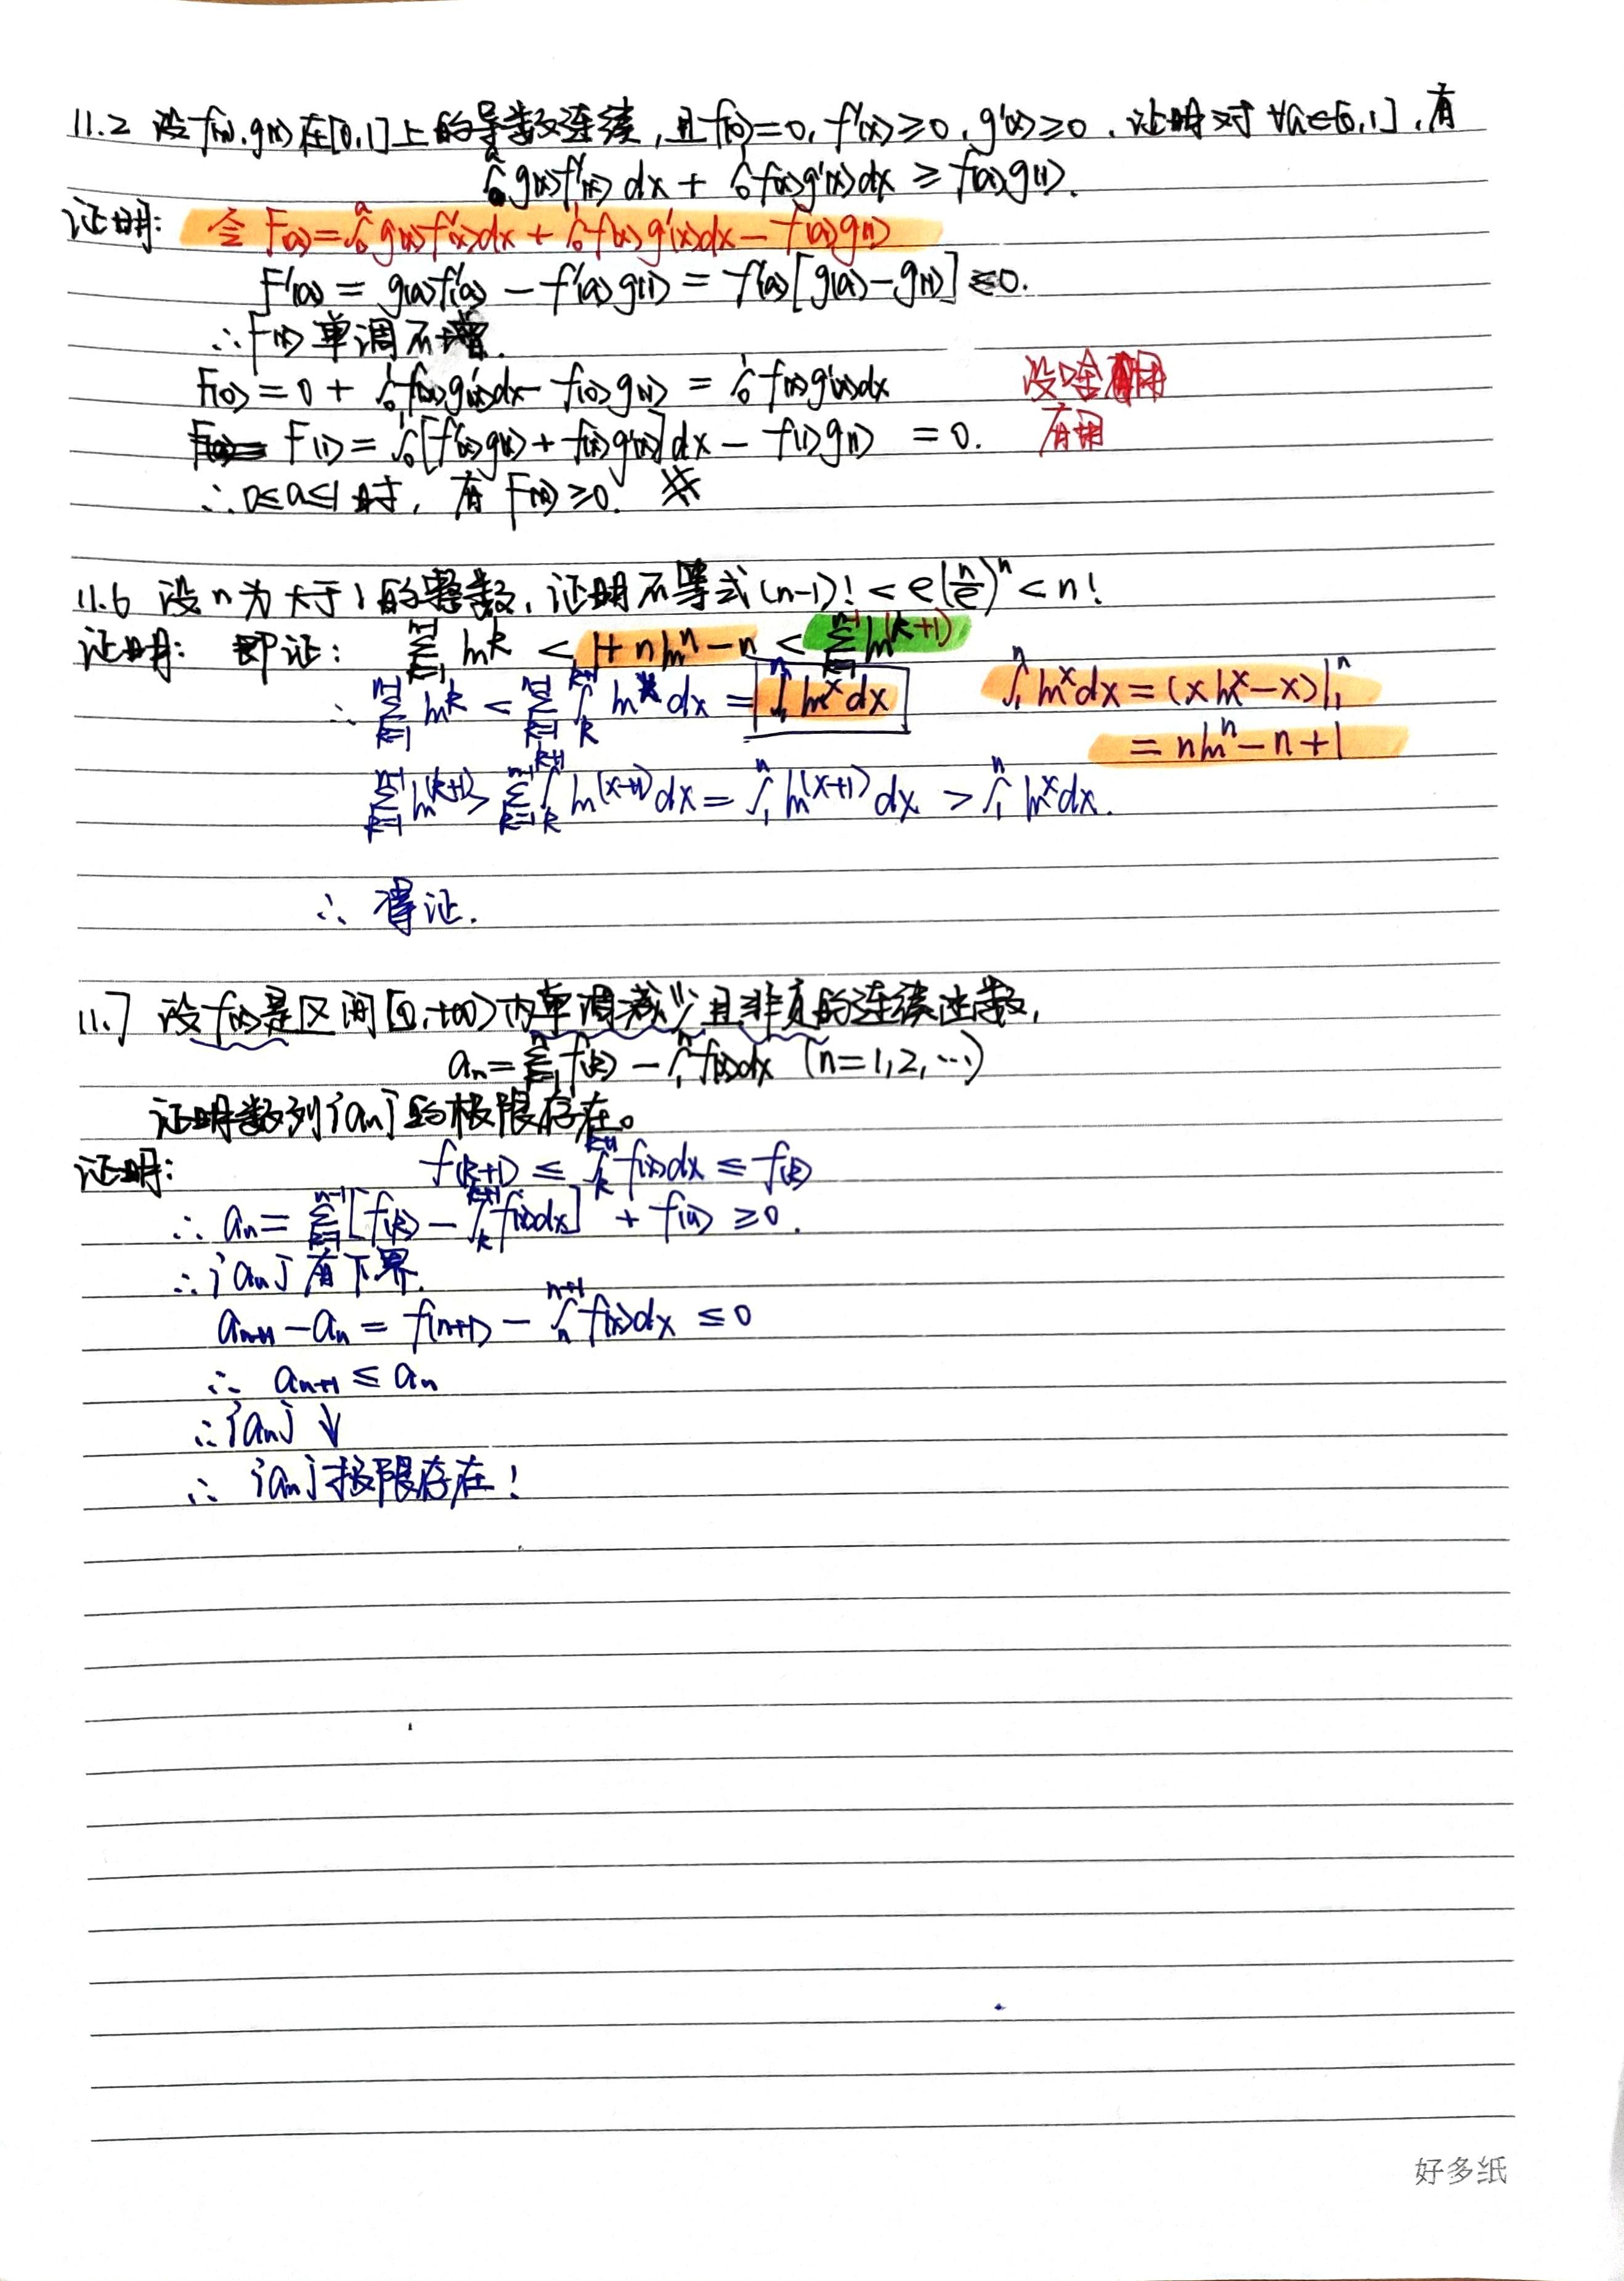 11.2 设f(x),g(x)在[0,1]上的导数连续,且f(0)=0, f'(x)≥0, g'(x)≥0. 证明对∀a∈[0,1],有
∫₀ᵃ g(x)f'(x)dx + ∫₀¹ f(x)g'(x)dx ≥ f(a)g(1).
证明: 令 F(a)=∫₀ᵃ g(x)f'(x)dx + ∫₀¹ f(x)g'(x)dx − f(a)g(1)
F'(a) = g(a)f'(a) − f'(a)g(1) = f'(a)[g(a)−g(1)] ≤0.
∴F(x)单调不增.
F(0) = 0 + ∫₀¹ f(x)g'(x)dx − f(0)g(1) = ∫₀¹ f(x)g'(x)dx 没啥用
F(1) = ∫₀¹ [f'(x)g(x) + f(x)g'(x)]dx − f(1)g(1) = 0. 有用
∴ 0≤a≤1时, 有F(a)≥0. #
11.6 设n为大于1的整数,证明不等式(n-1)! < e(n/e)ⁿ < n!
证明: 即证: ∑ₖ₌₁ⁿ⁻¹ lnk < 1+nlnn−n < ∑ₖ₌₁ⁿ⁻¹ ln(k+1)
∴ ∑ₖ₌₁ⁿ⁻¹ lnk < ∑ₖ₌₁ⁿ⁻¹ ∫ₖᵏ⁺¹ lnx dx = ∫₁ⁿ lnx dx ∫₁ⁿ lnx dx = (xlnx−x)|₁ⁿ
= nlnn−n+1
∑ₖ₌₁ⁿ⁻¹ ln(k+1) > ∑ₖ₌₁ⁿ⁻¹ ∫ₖᵏ⁺¹ ln(x+1)dx = ∫₁ⁿ ln(x+1)dx > ∫₁ⁿ lnxdx.
∴ 得证.
11.7 设f(x)是区间[0,+∞)内单调减少且非负的连续函数,
aₙ = ∑ₖ₌₁ⁿ f(k) − ∫₁ⁿ f(x)dx (n=1,2,…)
证明数列{aₙ}的极限存在。
证明: f(k+1) ≤ ∫ₖᵏ⁺¹ f(x)dx ≤ f(k)
∴ aₙ = ∑ₖ₌₁ⁿ⁻¹ [f(k) − ∫ₖᵏ⁺¹ f(x)dx] + f(n) ≥0.
∴{aₙ}有下界.
aₙ₊₁ − aₙ = f(n+1) − ∫ₙⁿ⁺¹ f(x)dx ≤ 0
∴ aₙ₊₁ ≤ aₙ
∴{aₙ} ↓
∴ {aₙ}极限存在!
好多纸